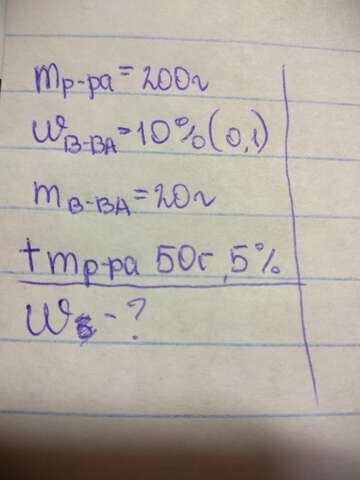 mр-ра = 200г
wв-ва = 10% (0,1)
mв-ва = 20г
+ mр-ра 50г, 5%
wв - ?